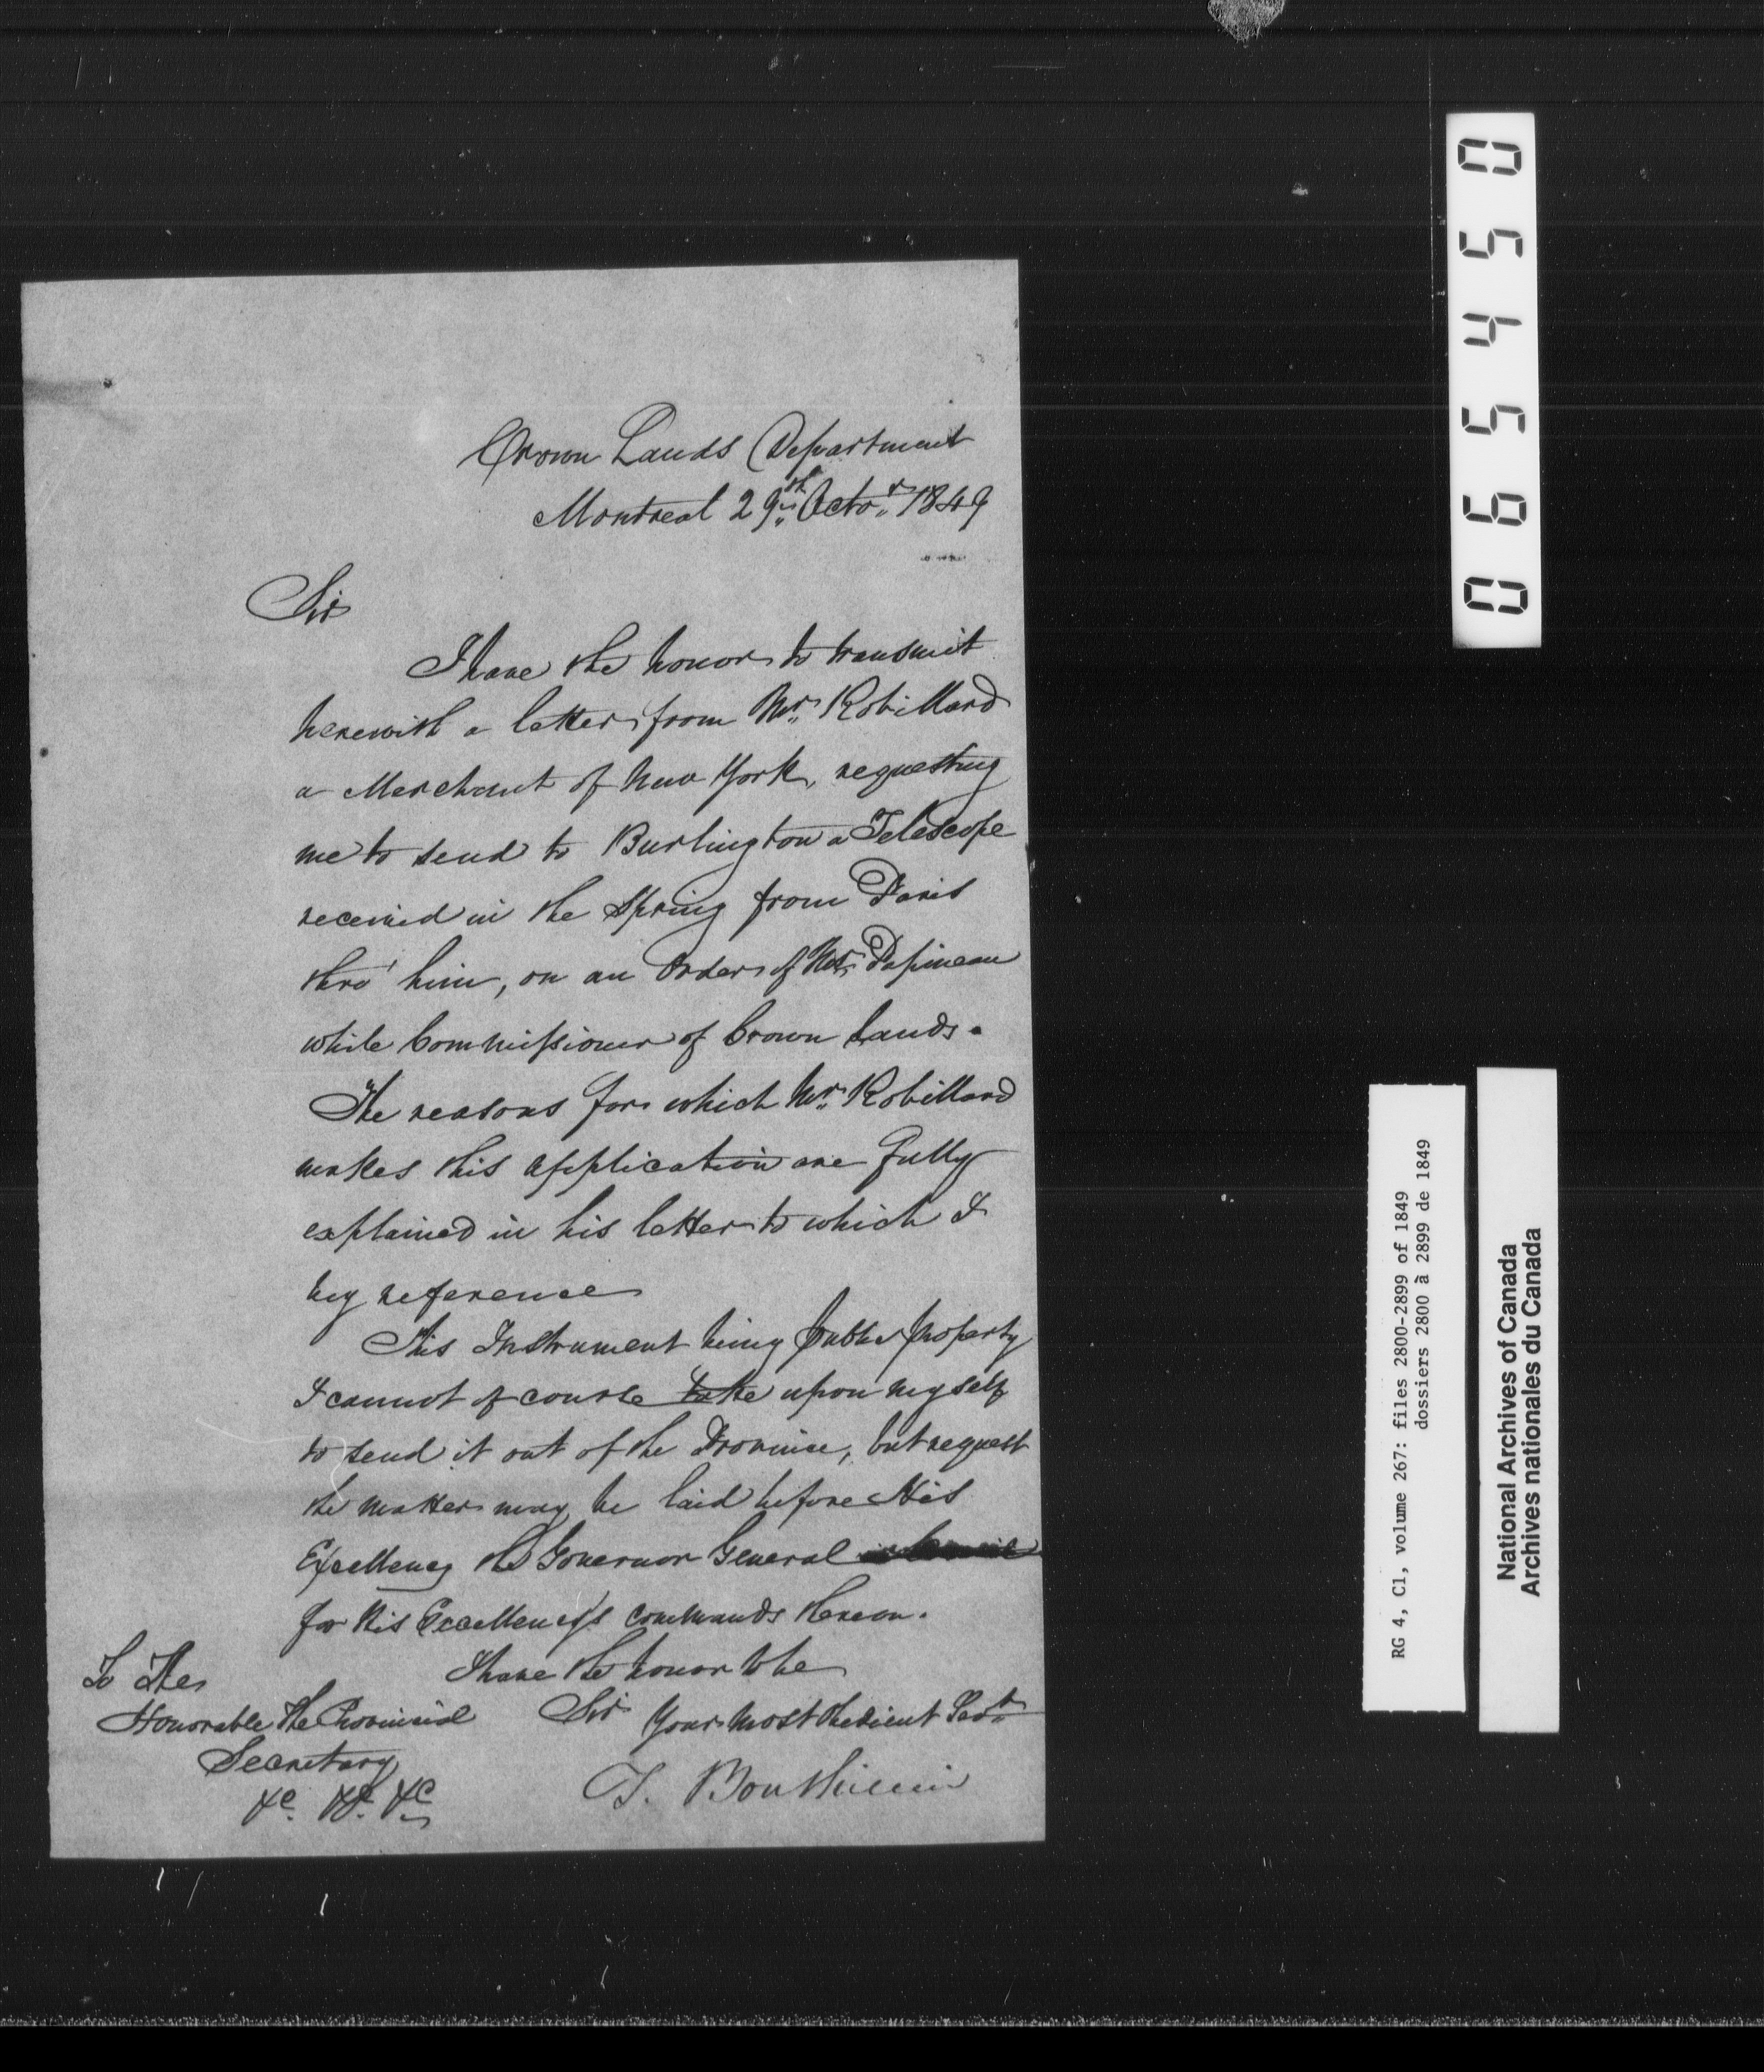 Crown Lands Department
Montreal 29th Octor 1849
Sir
I have the honor to transmit
herewith a letter from Mr. Robillard
a Merchant of New York, requesting
me to send to Burlington a Telescope
received in the Spring from Paris
thro' him, on an Order of Mr. Papineau
while Commissioner of Crown Lands.
The reasons for which Mr. Robillard
makes this application are fully
explained in his letter to which I
beg reference
This Instrument being public property
I cannot of course take upon myself
to send it out of the Province, but request
the matter may be laid before His
Excellency the Governor General
for His Excellency's commands thereon.
I have the honor to be
Sir Your most obedient Servt
T. Bouthillier
To The
Honorable The Provincial
Secretary
&c. &c. &c
065450
RG 4, C1, volume 267: files 2800-2899 of 1849
dossiers 2800 à 2899 de 1849
National Archives of Canada
Archives nationales du Canada